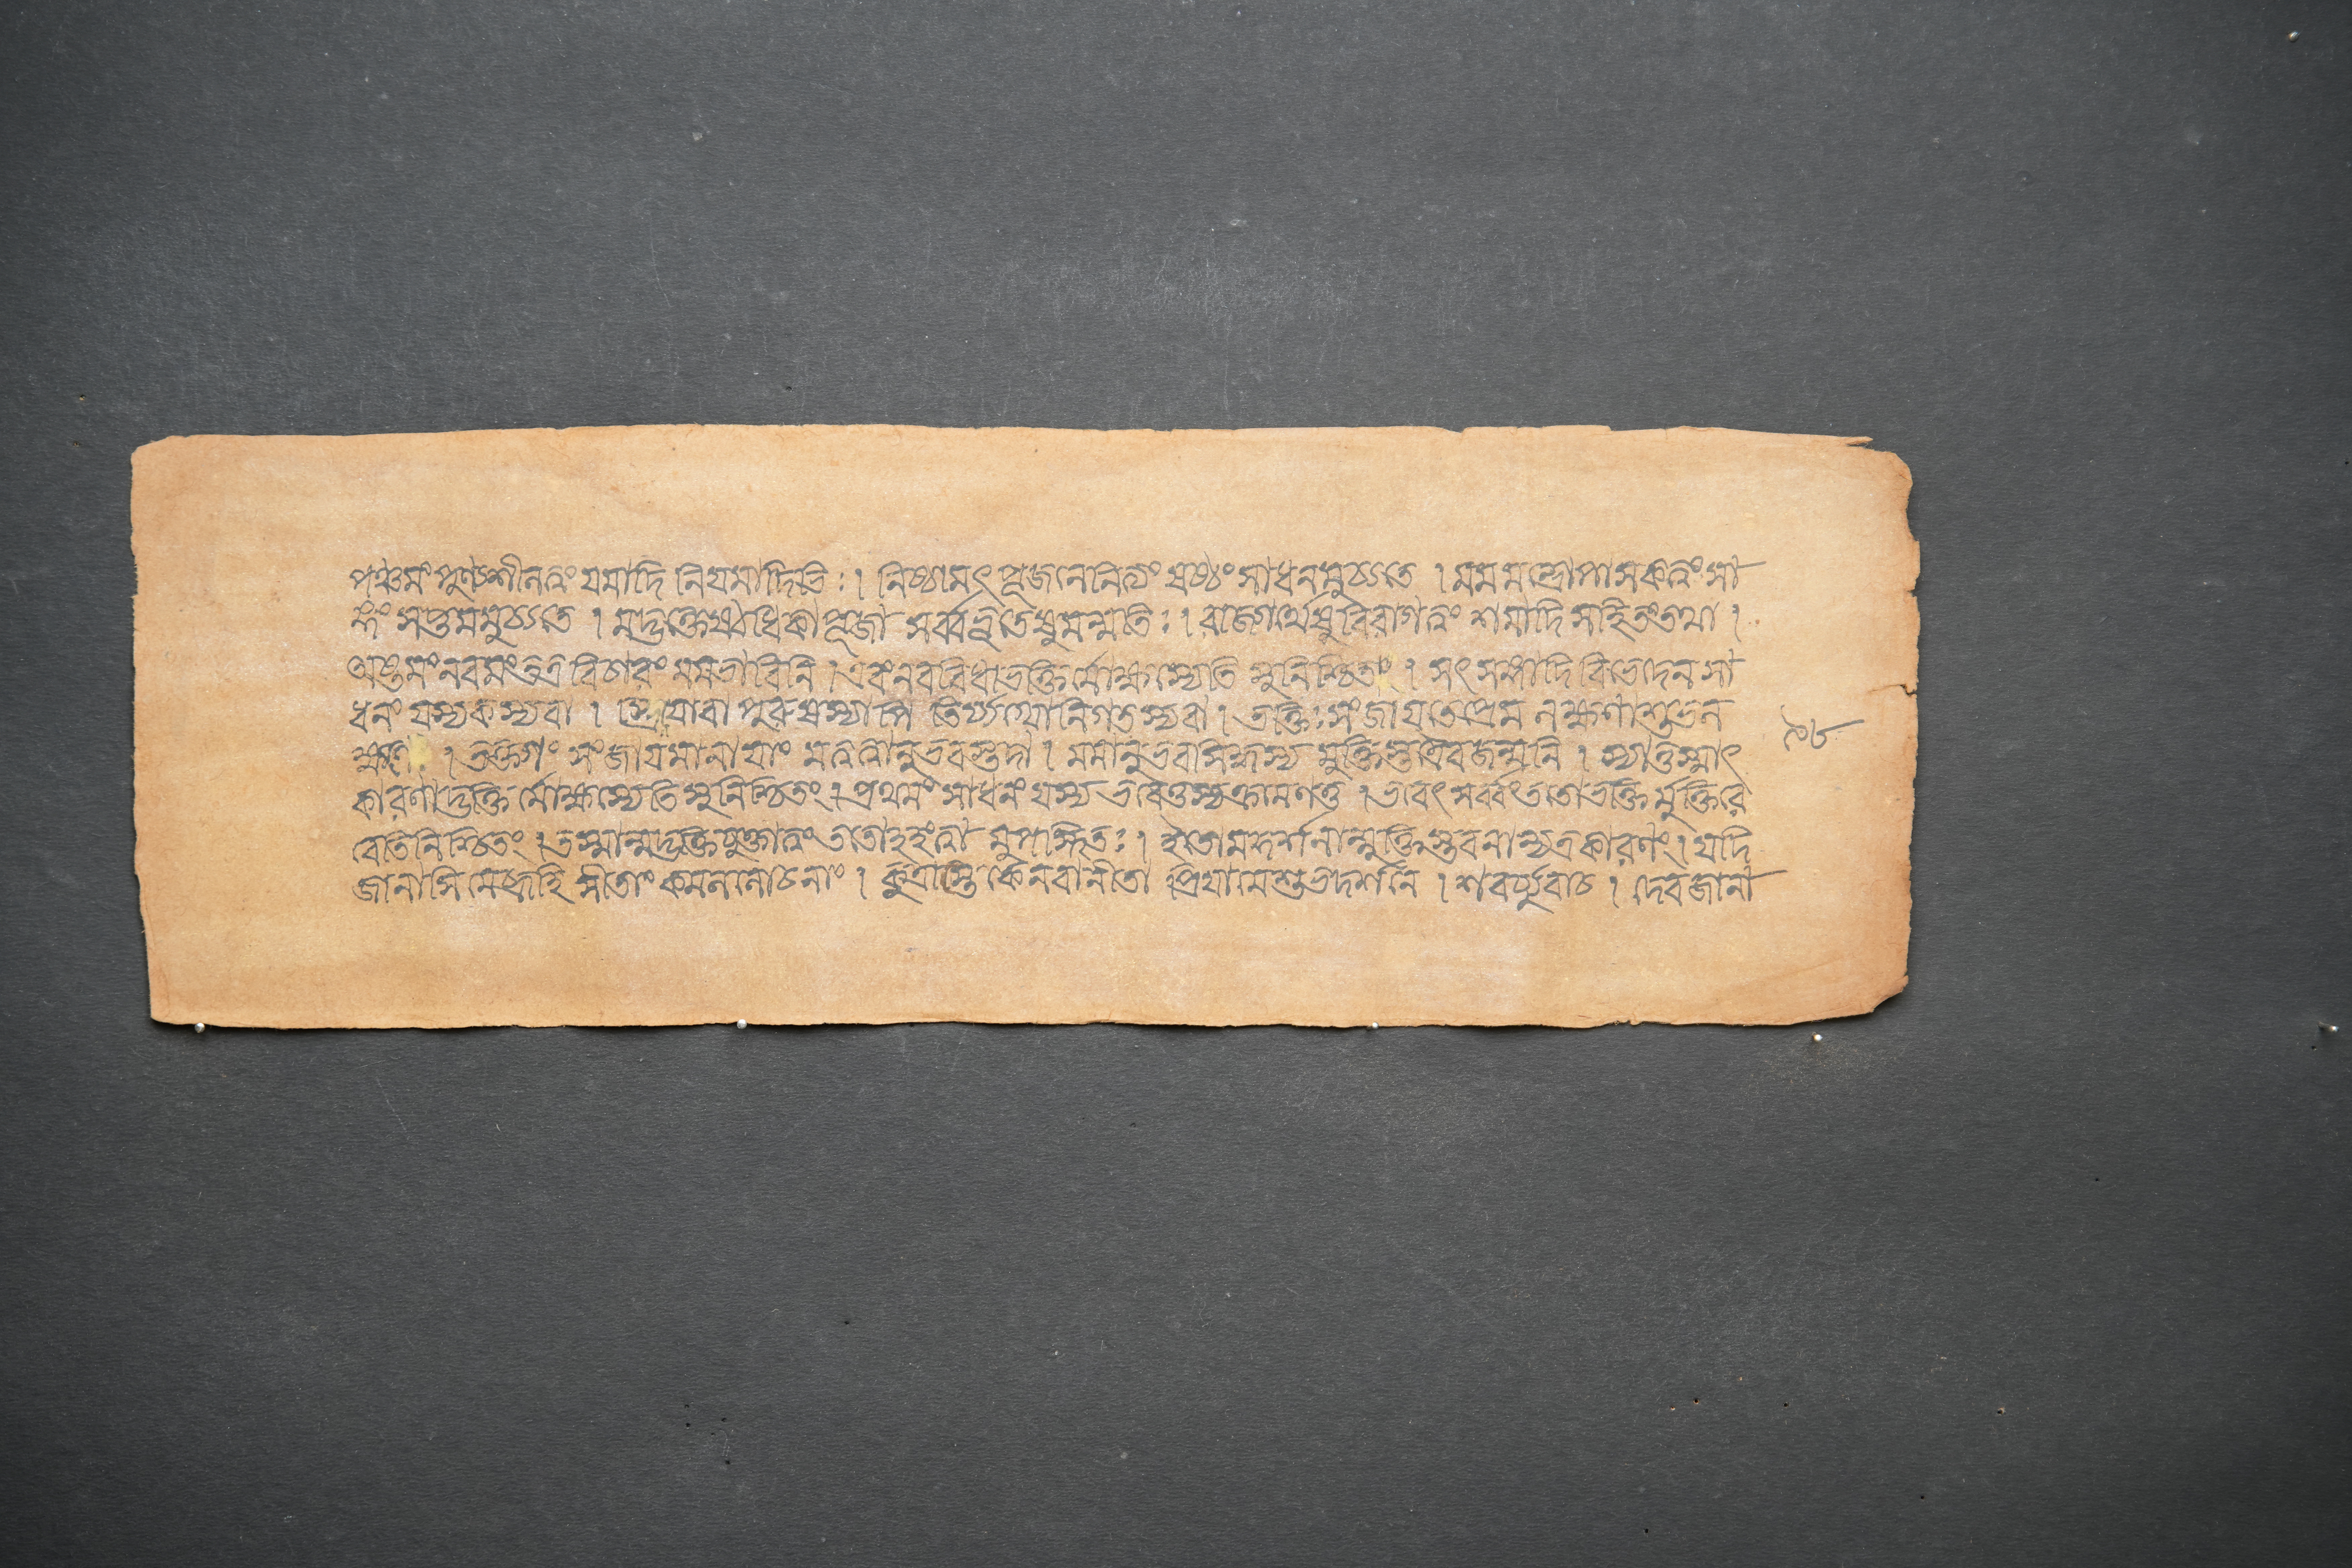 পঞ্চমং পুণ্যশীলত্বং যমাদি নিয়মাদিভিঃ । নিষ্ঠামৎ পূজনেনিত্যং ষষ্ঠং সাধনমুচ্যতে । মমমন্ত্রোপাসকত্বং সা
ঙ্গং সপ্তমমুচ্যতে । মদ্ভক্তেষ্বধিকাপূজা সর্ব্বভূতেষুমন্মতিঃ । বাহ্যার্থেষুবিরাগত্বং শমাদি সহিতংতথা ।
অষ্টমংনবমংতত্ত্ববিচারং মমভাবিনি । এবংনববিধাভক্তির্মোক্ষস্যেতি সুনিশ্চিতাং । সৎ সঙ্গাদি বিভেদেন সা
ধনং যস্যকস্যবা । স্ত্রিয়োবা পুরুষস্যাপি তির্য্যগ্যোনিগতস্যবা । ভক্তিঃ সংজায়তেপ্রেম লক্ষণাশুভল
ক্ষণে । ভক্তৌ সংজায়মানায়াং মত্তত্ত্বানুভবস্তদা । মমানুভবসিদ্ধস্য মুক্তিস্তত্রৈবজন্মনি । স্যাত্তস্মাৎ
কারণাদ্ভক্তি র্মোক্ষস্যেতিসুনিশ্চিতং । প্রথমং সাধনং যস্য ভবেত্তস্যক্রমেণতু । ভবেৎ সর্ব্বংততোভক্তি র্মুক্তিরে
বেতিনিশ্চিতং । তস্মান্মদ্ভক্তিযুক্তাত্বং ততোহহংত্বা মুপস্থিতঃ । ইতোমদ্দর্শনান্মুক্তিস্তবনান্যত্রকারণং । যদি
জানাসি মেব্রূহি সীতাং কমললোচনাং । কুত্রাস্তি কেনবানীতা প্রিয়ামেশুভদর্শনে । শবর্য্যুবাচ । দেবজানা
৯৮